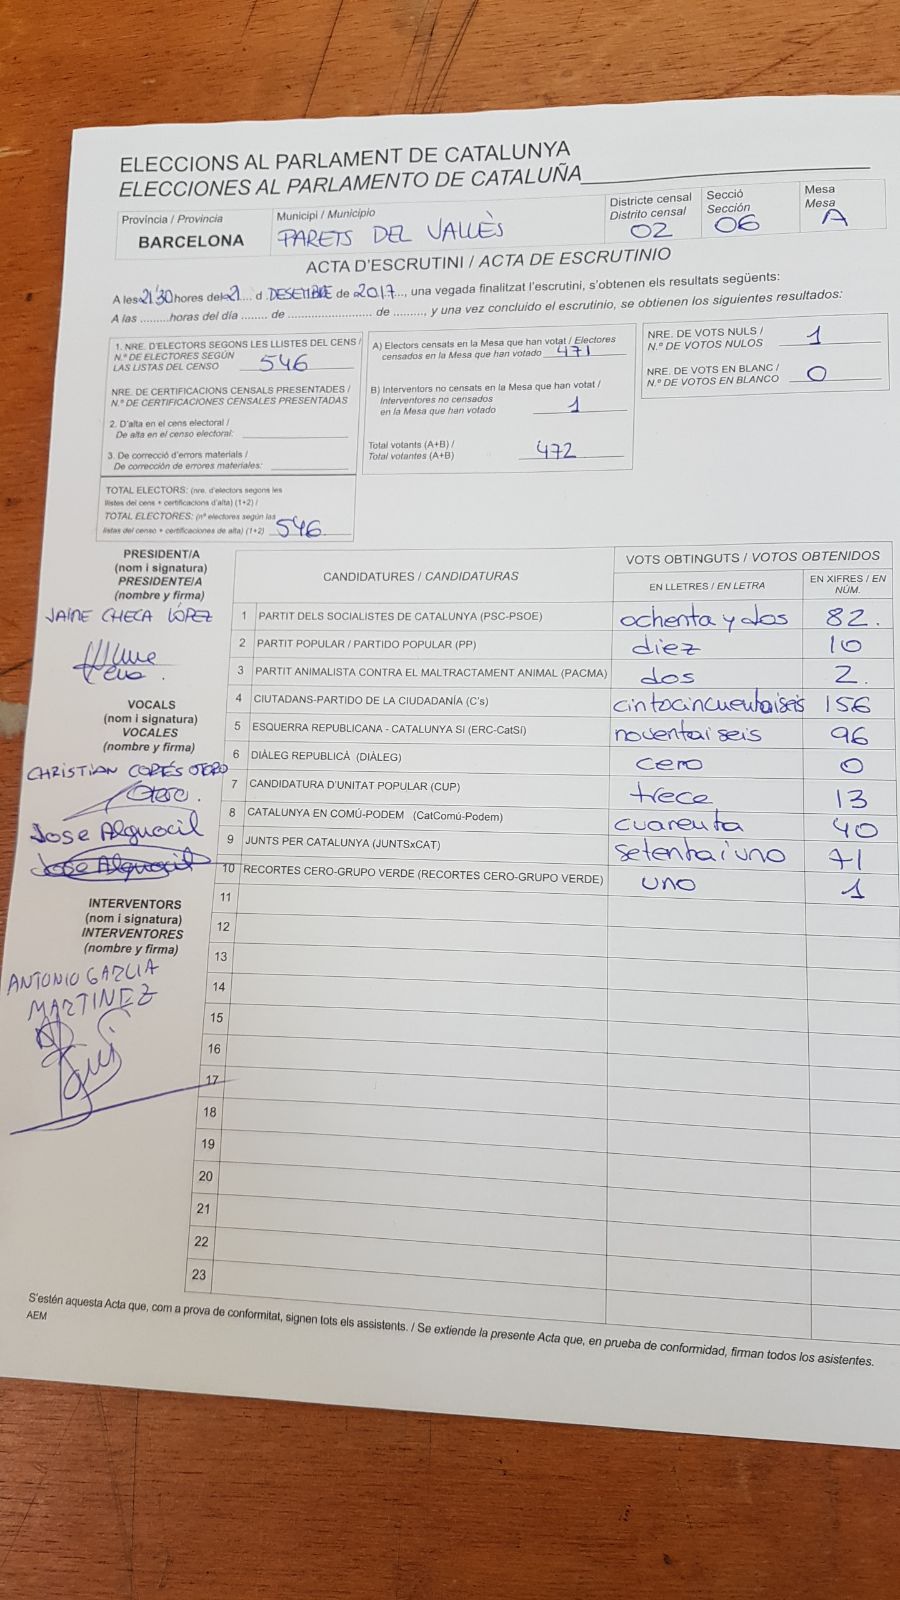 ELECCIONS AL PARLAMENT DE CATALUNYA
ELECCIONES AL PARLAMENTO DE CATALUÑA
Provincia / Provincia
BARCELONA
Municipi / Municipio
PARETS DEL VALLÈS
Districte censal
Distrito censal
02
Secció
Sección
06
Mesa
Mesa
A
ACTA D'ESCRUTINI / ACTA DE ESCRUTINIO
A les 21'30 hores del 21 d DESEMBRE de 2017..., una vegada finalitzat l'escrutini, s'obtenen els resultats següents:
A las .........horas del día ........ de ......................... de ........., y una vez concluido el escrutinio, se obtienen los siguientes resultados:
1. NRE. D'ELECTORS SEGONS LES LLISTES DEL CENS /
N.º DE ELECTORES SEGÚN
LAS LISTAS DEL CENSO 546
NRE. DE CERTIFICACIONS CENSALS PRESENTADES /
N.º DE CERTIFICACIONES CENSALES PRESENTADAS
2. D'alta en el cens electoral /
De alta en el censo electoral:
3. De correcció d'errors materials /
De corrección de errores materiales:
TOTAL ELECTORS: (nre. d'electors segons les
llistes del cens + certificacions d'alta) (1+2) /
TOTAL ELECTORES: (nº electores según las
listas del censo + certificaciones de alta) (1+2) 546
A) Electors censats en la Mesa que han votat / Electores
censados en la Mesa que han votado 471
B) Interventors no censats en la Mesa que han votat /
Interventores no censados
en la Mesa que han votado 1
Total votants (A+B) /
Total votantes (A+B) 472
NRE. DE VOTS NULS /
N.º DE VOTOS NULOS 1
NRE. DE VOTS EN BLANC /
N.º DE VOTOS EN BLANCO 0
PRESIDENT/A
(nom i signatura)
PRESIDENTE/A
(nombre y firma)
JAIME CHECA LÓPEZ
VOCALS
(nom i signatura)
VOCALES
(nombre y firma)
CHRISTIAN CORTÉS OTERO
Otero.
Jose Alguacil
Jose Alguacil
INTERVENTORS
(nom i signatura)
INTERVENTORES
(nombre y firma)
ANTONIO GARCIA
MARTINEZ
CANDIDATURES / CANDIDATURAS
VOTS OBTINGUTS / VOTOS OBTENIDOS
EN LLETRES / EN LETRA
EN XIFRES / EN
NÚM.
1 PARTIT DELS SOCIALISTES DE CATALUNYA (PSC-PSOE) ochenta y dos 82.
2 PARTIT POPULAR / PARTIDO POPULAR (PP) diez 10
3 PARTIT ANIMALISTA CONTRA EL MALTRACTAMENT ANIMAL (PACMA) dos 2.
4 CIUTADANS-PARTIDO DE LA CIUDADANÍA (C's) cintocincuentaiseis 156
5 ESQUERRA REPUBLICANA - CATALUNYA SI (ERC-CatSí) noventaiseis 96
6 DIÀLEG REPUBLICÀ (DIÀLEG) cero 0
7 CANDIDATURA D'UNITAT POPULAR (CUP) trece 13
8 CATALUNYA EN COMÚ-PODEM (CatComú-Podem) cuarenta 40
9 JUNTS PER CATALUNYA (JUNTSxCAT) setentaiuno 71
10 RECORTES CERO-GRUPO VERDE (RECORTES CERO-GRUPO VERDE) uno 1
11
12
13
14
15
16
17
18
19
20
21
22
23
S'estén aquesta Acta que, com a prova de conformitat, signen tots els assistents. / Se extiende la presente Acta que, en prueba de conformidad, firman todos los asistentes.
AEM